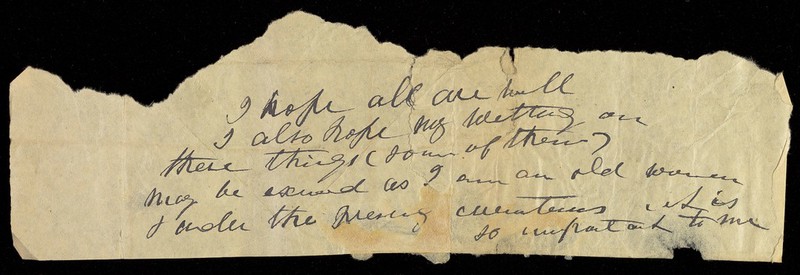 I hope all are well
I also hope my writting on
these things (some of them)
may be excused as I am an old woman
& under the present it is
so important to me